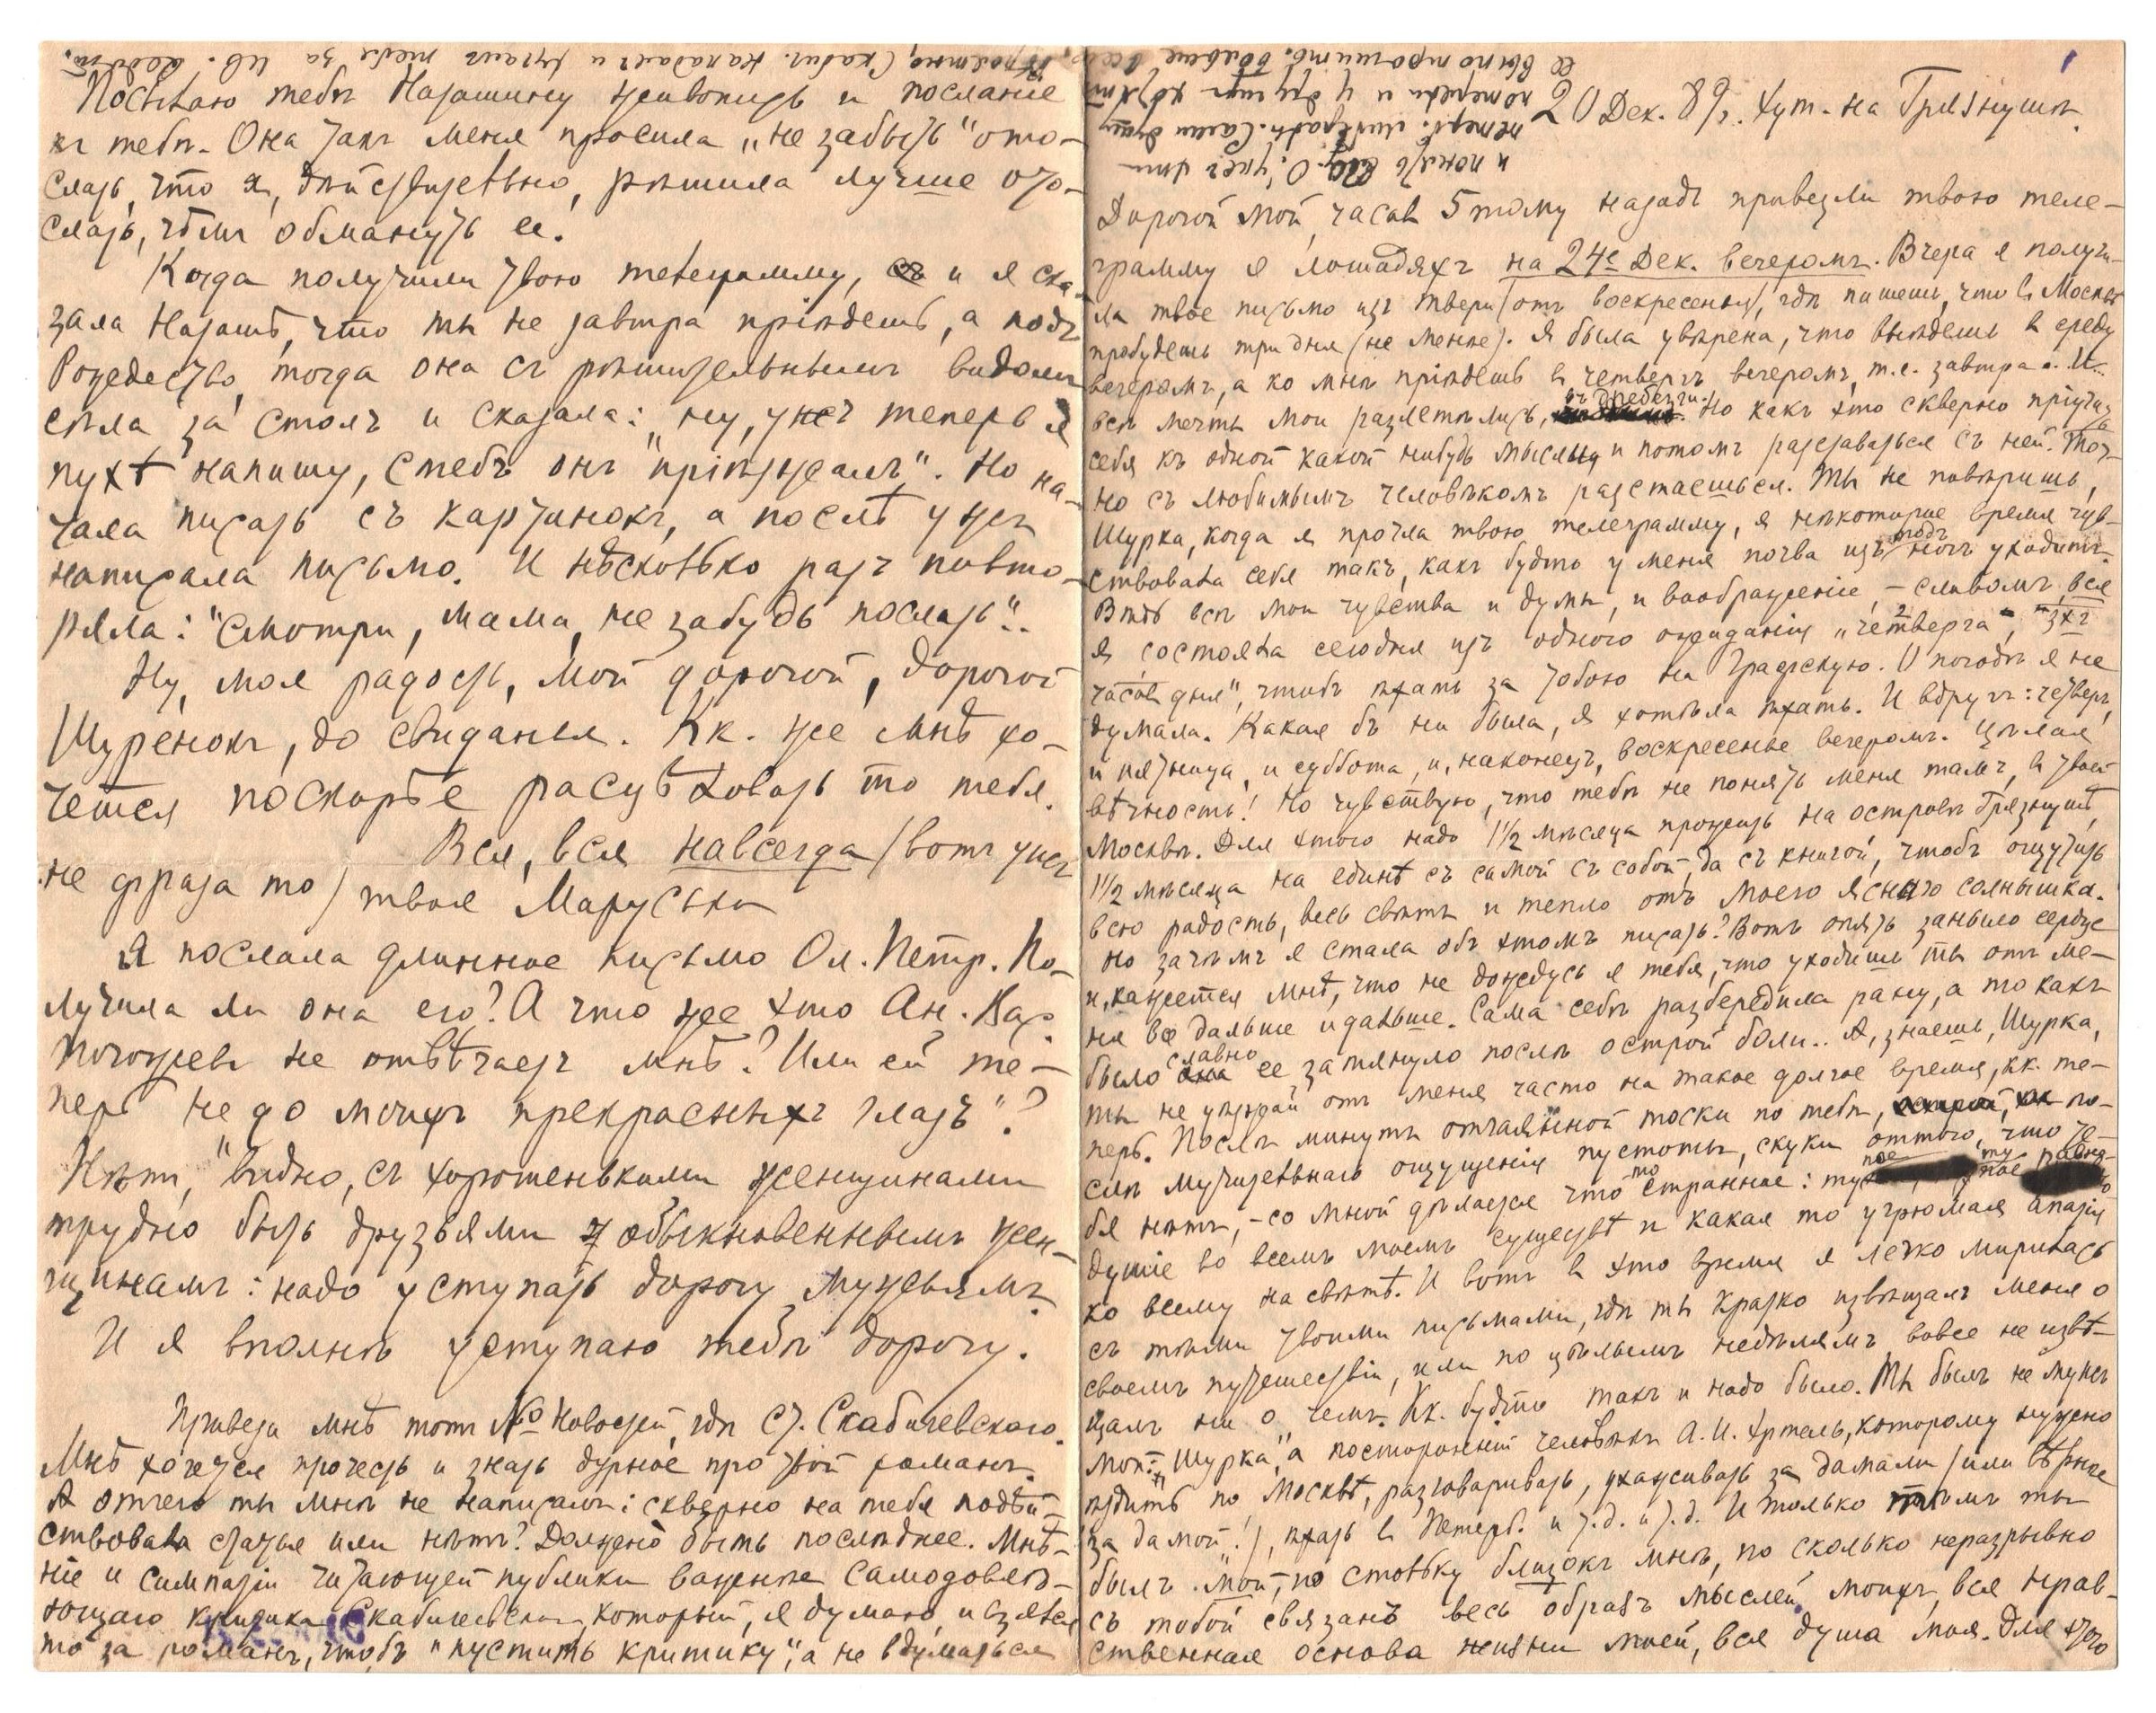 20 Дек. 89г. Хут. на Грязнушѣ.
Дорогой мой, часов 5 тому назадъ привезли твою теле-
грамму о лошадяхъ на 24е Дек. вечеромъ. Вчера я получи-
ла твое письмо изъ Твери (отъ воскресенья), гдѣ пишешь, что въ Москвѣ
пробудешь три дня (не менѣе). Я была увѣрена, что выѣдешь в среду
вечеромъ, а ко мнѣ пріѣдешь в четвергъ вечеромъ, т.е. завтра. И
всѣ мечты мои разлетѣлись въ дребезги. Но какъ это скверно пріучать
себя къ одной какой нибудь мысли и потомъ разставаться съ ней. Точ-
но съ любимымъ человѣкомъ разстаешься. Ты не повѣришь,
Шурка, когда я прочла твою телеграмму, я нѣкоторое время чув-
ствовала себя такъ, какъ будто у меня почва изъ подъ ногъ уходитъ.
Вѣдь всѣ мои чувства и думы, и воображеніе, – словомъ вся
я состояла сегодня изъ одного ожиданія „четверга", „3хъ
часов дня", чтобъ ѣхать за тобою на Графскую. О погодѣ я не
думала. Какая бъ ни была, я хотѣла ѣхать. И вдругъ: четвергъ,
и пятница, и суббота, и, наконецъ, воскресенье вечеромъ. Цѣлая
вѣчность! Но чувствую, что тебѣ не понять меня тамъ, в твоей
Москвѣ. Для этого надо 1½ мѣсяца прожить на островѣ Грязнушѣ,
1½ мѣсяца на единѣ съ самой съ собой, да съ книгой, чтобъ ощутить
всю радость, весь свѣтъ и тепло отъ моего яснаго солнышка.
Но зачѣмъ я стала объ этомъ писать? Вотъ опять заныло сердце
и, кажется мнѣ, что не дождусь я тебя, что уходишь ты отъ ме-
ня все дальше и дальше. Сама себѣ разбередила рану, а то какъ
было славно ее затянуло послѣ острой боли.. А, знаешь, Шурка,
ты не уѣзжай отъ меня часто на такое долгое время, кк. те-
перь. Послѣ минуты отчаянной тоски по тебѣ, по-
слѣ мучительнаго ощущенія пустоты, скуки оттого, что те-
бя нѣтъ, – со мной дѣлается что то странное: тупое равно-
душіе во всемъ моемъ существѣ и какая то угрюмая апатія
ко всему на свѣтѣ. И вотъ в это время я легко мирилась
съ тѣми твоими письмами, гдѣ ты кратко извѣщалъ меня о
своемъ путешествіи, или по цѣлымъ недѣлямъ вовсе не извѣ-
щалъ ни о чемъ. Кк. будто такъ и надо было. Ты былъ не „мужъ
мой Шурка", а посторонній человѣкъ А. И. Эртель, которому нужно
ѣздить по Москвѣ, разговаривать, ухаживать за дамами (или вѣрнѣе
за дамой!), ѣхать в Петерб. и т.д. и т.д. И только тѣмъ ты
былъ „мой", по стольку близокъ мнѣ, по сколько неразрывно
съ тобой связанъ весь образъ мыслей моихъ, вся нрав-
ственная основа жизни моей, вся душа моя. Для этого
Посылаю тебѣ Наташину живопись и посланіе
къ тебѣ. Она такъ меня просила „не забыть" ото-
слать, что я, дѣйствительно, рѣшила лучше ото-
слать, чѣмъ обмануть ее.
Когда получили твою телеграмму, и я ска-
зала Наташѣ, что ты не завтра пріѣдешь, а подъ
Рождество, тогда она съ рѣшительнымъ видомъ
сѣла за столъ и сказала: „ну, ужъ теперь я
пухѣ напишу, стебъ онъ пріѣзжалъ". Но на-
чала писать съ картинокъ, а послѣ ужъ
написала письмо. И нѣсколько разъ повто-
ряла: "Смотри, мама, не забудь послать"..
Ну, моя радость, мой дорогой, дорогой
Шурёнокъ, до свиданья. Кк. же мнѣ хо-
чется поскорѣе расцѣловать то тебя.
Вся, вся навсегда (вотъ ужъ
не фраза то) твоя Маруська
Я послала длинное письмо Ол. Петр. По-
лучила ли она его? А что же это Ан. Вас.
Погожева не отвѣчаетъ мнѣ? Или ей те-
перь не до моихъ „прекрасныхъ глазъ"?
Нѣтъ, видно, съ хорошенькими женщинами
трудно быть друзьями обыкновеннымъ жен-
щинамъ: надо уступать дорогу мужьямъ.
И я вполнѣ уступаю тебѣ дорогу.
Привези мнѣ тотъ № Новостей, гдѣ ст. Скабичевскаго.
Мнѣ хочется прочесть и знать дурное про твой романъ.
А отчего ты мнѣ не написалъ: скверно на тебя подѣй-
ствовала статья или нѣтъ? Должно быть послѣднее. Мнѣ-
ніе и симпатіи читающей публики важнѣе самодовлѣ-
ющаго критика Скабичевскаго, который, я думаю, и взялся
то за романъ, чтобъ „пустить критику", а не вдуматься
и понять его. О, ужъ эти
петерб. литерат. Сами душу
потеряли и у другихъ хотятъ